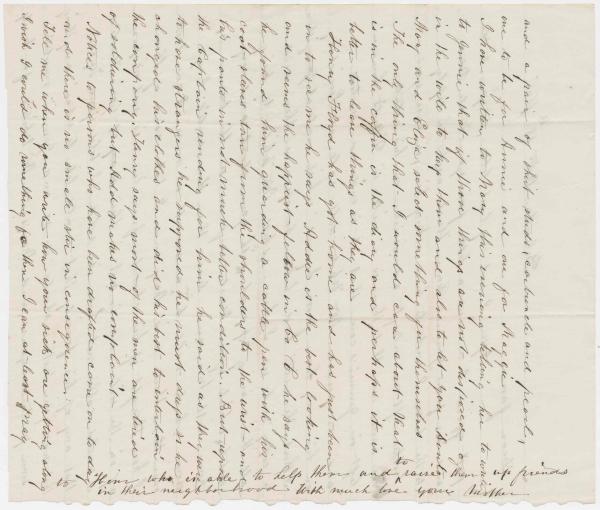 and a pair of shirt studs, carbuncle and pearls,
one to be for Annie and one for Maggie
I have written to Mary this evening telling her to write
to Jennie that if those things are not disposed of
in the wile to buy them and also to let you know
May and Eliza select something for themselves
The only thing that I would care about that
is in the coffin is the diary and perhaps it is
better to leave things as they are
Henry Floyd has got home and has just been
in to see me he says Addie is the best looking
and the happiest fellow in Co B he says
he found him guarding a cattle pen with his
coat sleeves torn from the shoulders to the wrist and
his pants in not much better condition. But upon
the Captain sending for him he said as they were
to have strangers he supposed he must dress so he
changed his clothes and did his best to entertain
the company. Henry says most of the men are tired
of soldiering but Add makes no complaint
Notices to persons who have been drafted came on to day
and there is no small stir in consequence.
Tell me when you write how your sick are getting along
I wish I could do something for them I can at least pray
to Him who is able to help them and to raise them up friends
in their neighborhood With much love your Mother